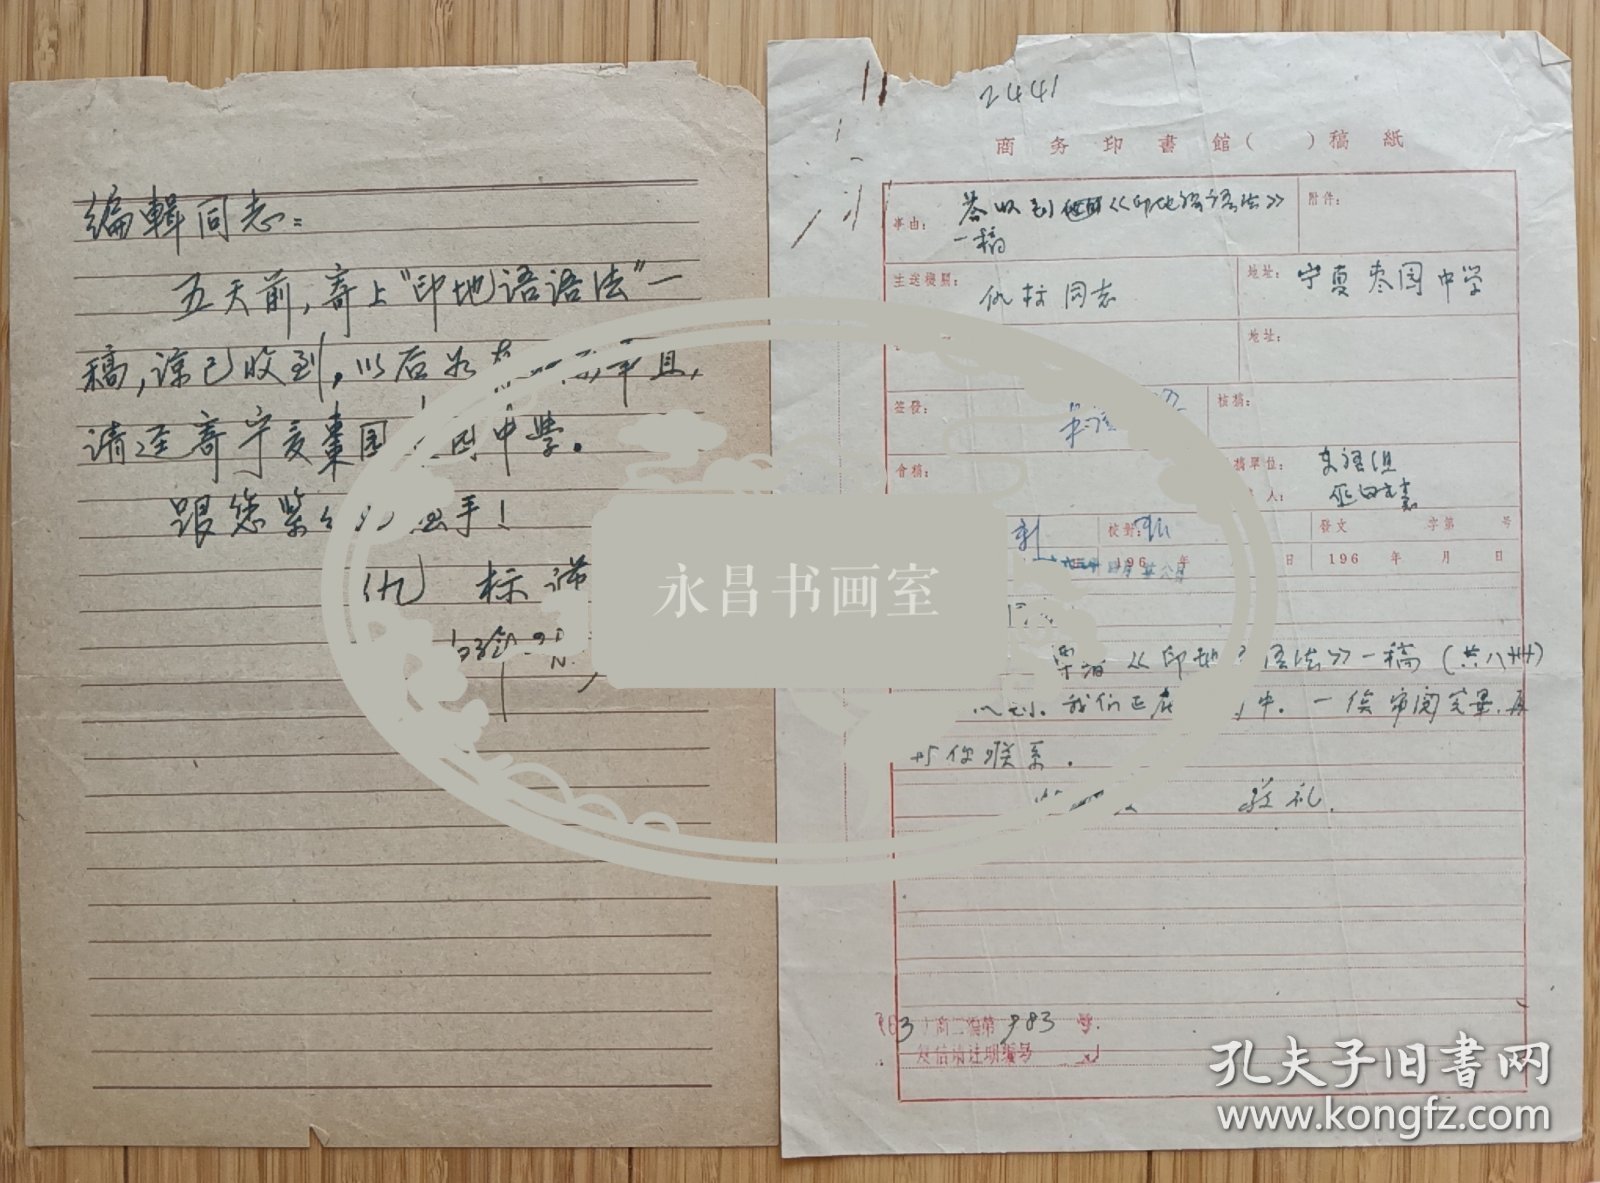 编輯同志：
五天前，寄上“印地语语法”一
稿，谅已收到，以后如
请迳寄宁夏枣园中学。
跟您紧手！
仇标
2441
商务印書館（　）稿紙
事由：
答收到他的《印地语语法》
一稿
附件：
主送機關：
仇标同志
地址：
宁夏枣园中学
地址：
签發：
核稿：
会稿：
稿單位：
东语组
人：
校對：
發文　字第　号
196　年
日
196　年　月　日
《印地语法》一稿（共八册）
收到。我们正在中。一俟审阅完毕，再
与你联系。
敬礼。
63）商二编第983号
复信请注明编号
永昌书画室
孔夫子旧书网
www.kongfz.com